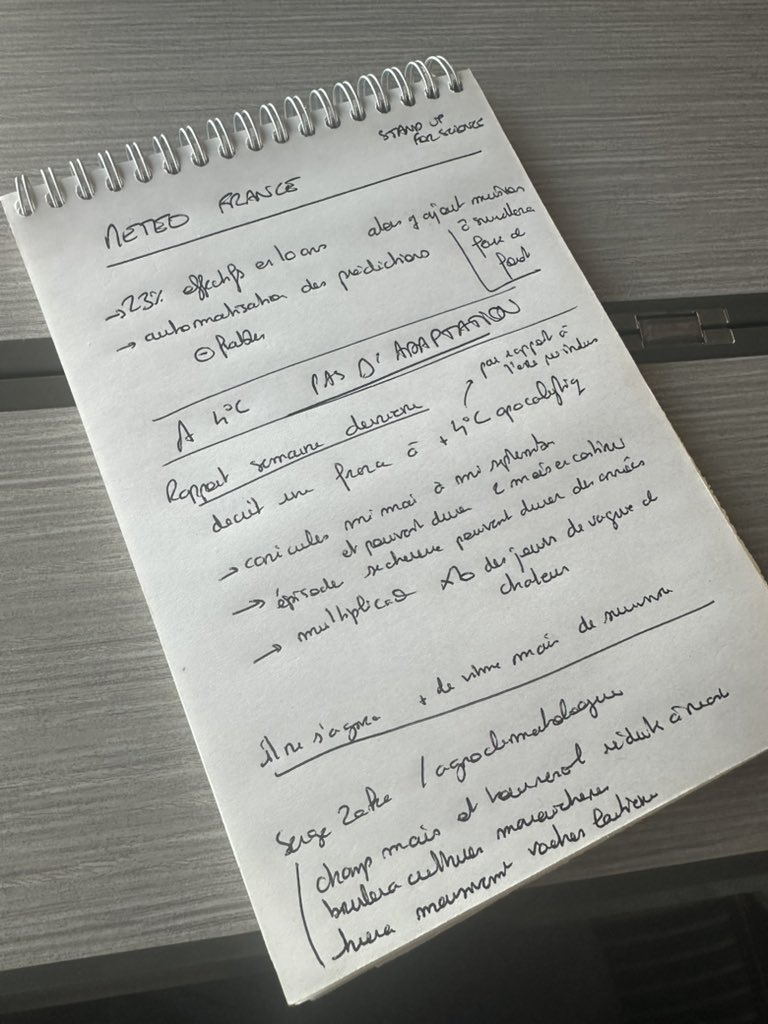 STAND UP
FOR SCIENCE
METEO FRANCE
→ 23% effectifs en 10 ans alors q ajout missions
→ automatisation des prédictions
⊖ fiables
A 4°C PAS D'ADAPTATION
Rapport semaine dernière
par rapport à
l'ère
décrit une France à +4°C
→ canicules mi mai à mi septembre
et pouvant durer 2 mois en continu
→ épisode sécheresse pouvant durer des années
→ x10 des jours de vague de
chaleur
il ne s'agira + de vivre mais de survivre
Serge Zaka / agroclimatologue
champ mais et tournesol réduits à néant
brulera cultures maraichères
tuera vaches laitières